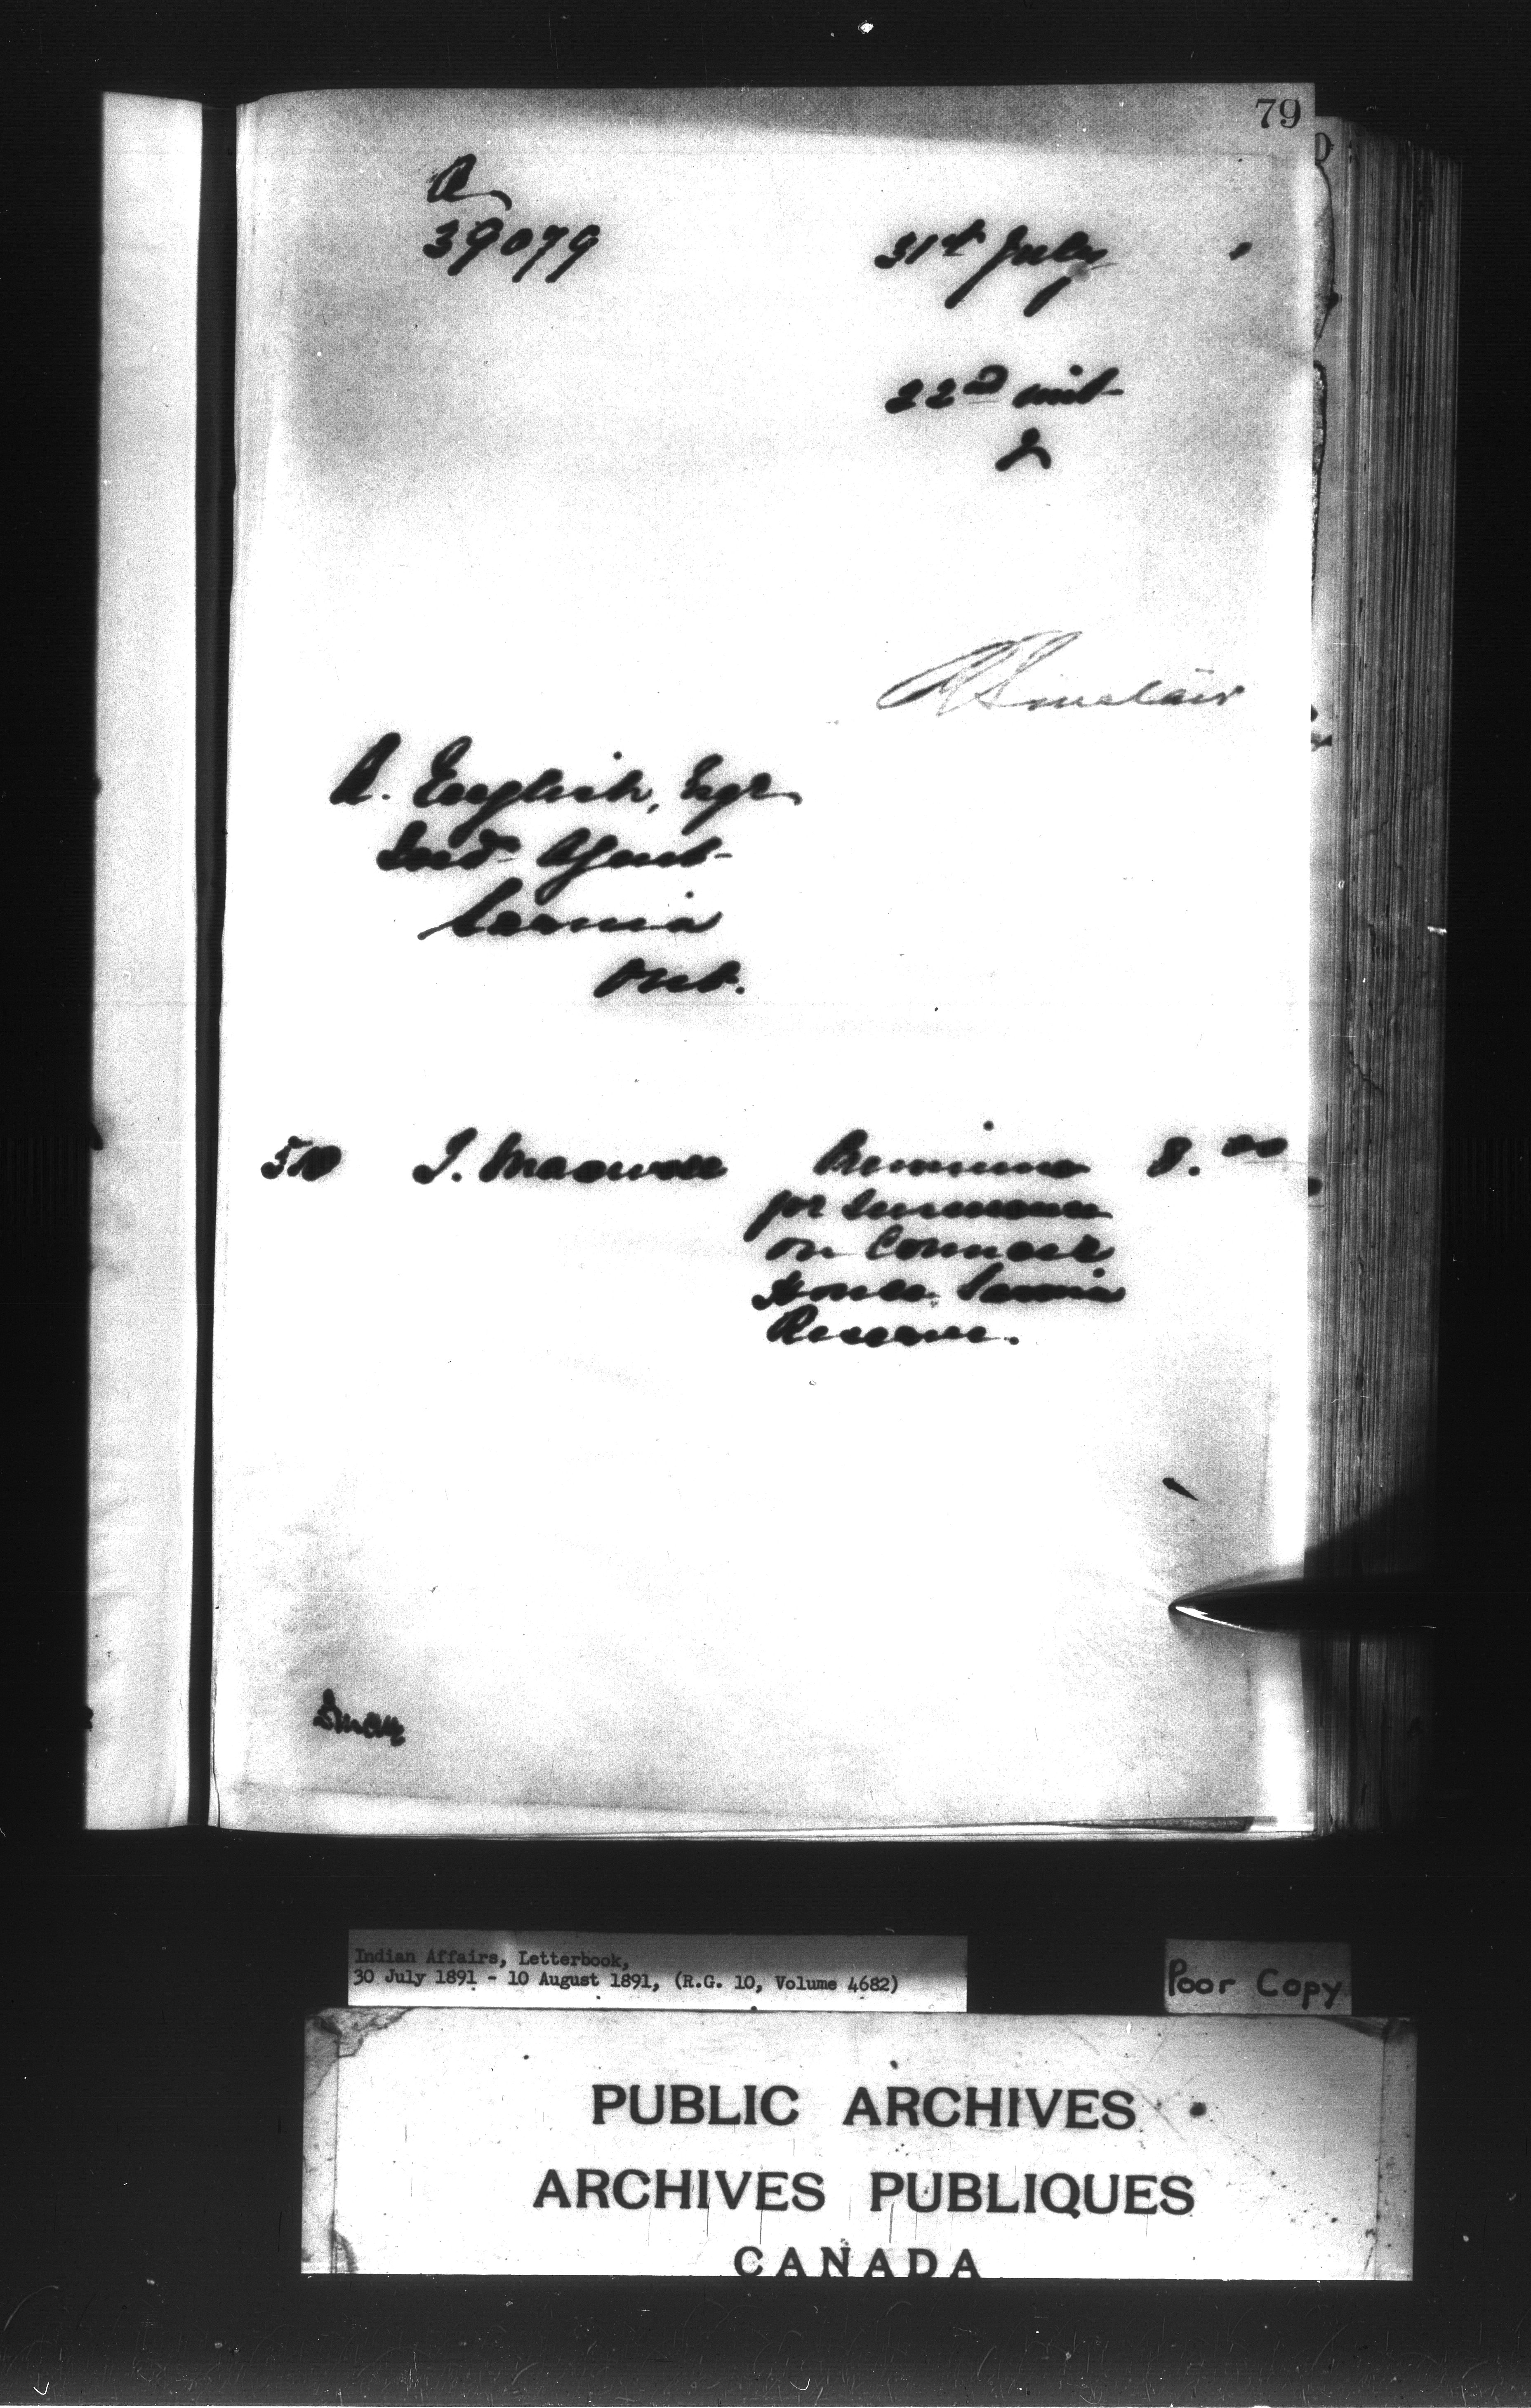 79
A
39079
31st July
22nd inst
R Sinclair
A. English, Esqr
Ind Agent
Sarnia
Ont.
510 J. Maxwell Premium 8.00
for Insurance
on Council
House Sarnia
Reserve.
Indian Affairs, Letterbook,
30 July 1891 - 10 August 1891, (R.G. 10, Volume 4682)
Poor Copy
PUBLIC ARCHIVES
ARCHIVES PUBLIQUES
CANADA